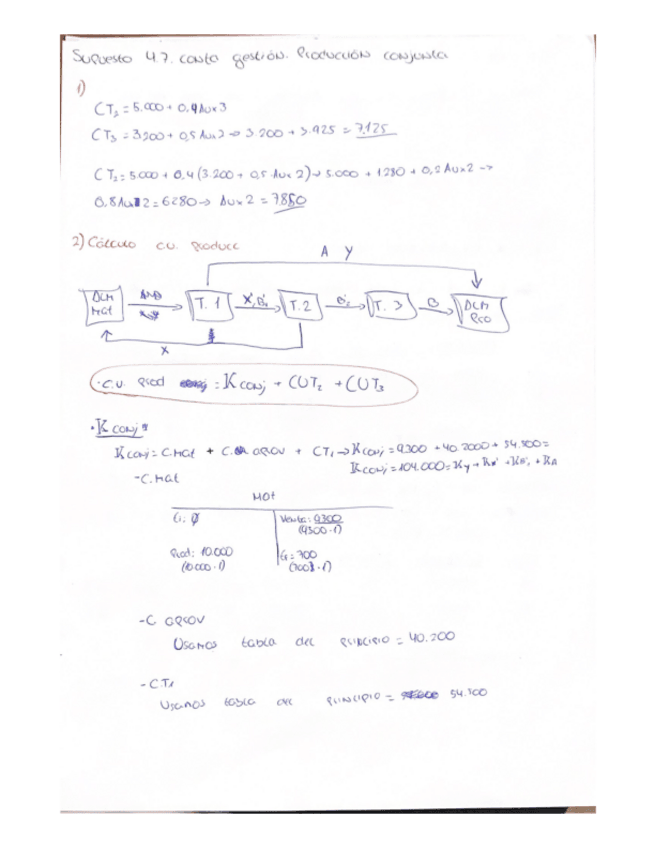 Supuesto 4.7. conta gestión. Producción conjunta
1)
CT₃ = 5.000 + 0,4 Aux 3
CT₃ = 3200 + 0,5 Aux 2 → 3.200 + 3.925 = 7.125
CT₂ = 5.000 + 0,4 (3.200 + 0,5 Aux 2) → 5.000 + 1280 + 0,2 Aux 2 →
0,8 Aux 2 = 6280 → Aux 2 = 7850
2) Cálculo cu. producc
A Y
ALM MAt
T. 1
X', B'₁
T. 2
B'₂
T. 3
B
ALM Pco
X
· C.U. prod = K conj + CUT₂ + CUT₃
· K conj
K conj = C.Mat + C. aprov + CT₁ → K conj = 9300 + 40.2000 + 54.500 =
K conj = 104.000 = Ky + Kx' + KB'₁ + KA
- C. Mat
Mat
Ei: Ø
Venta: 9300
(9300·1)
Prod: 10.000
(10.000·1)
Ef = 700
(700·1)
- C aprov
Usamos tabla del principio = 40.200
- CT₁
Usamos tabla del principio = 54.500